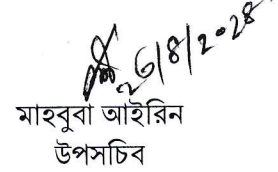 ২৬/৪/২০২৪
মাহবুবা আইরিন
উপসচিব